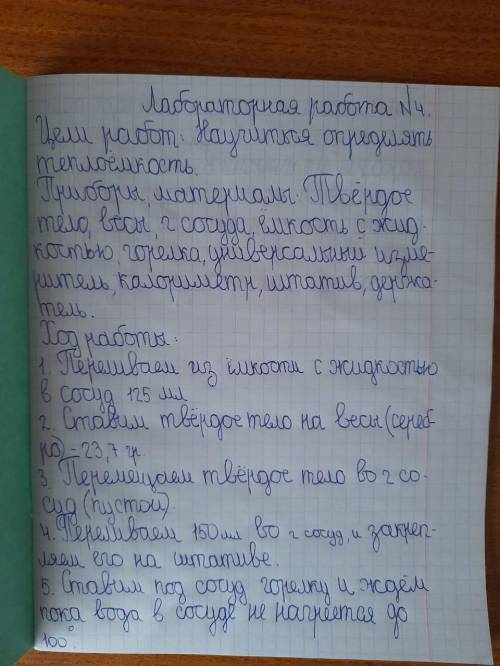 Лабораторная работа №4.
Цели работ: Научиться определять
теплоёмкость.
Приборы, материалы: Твёрдое
тело, весы, 2 сосуда, ёмкость с жид-
костью, горелка, универсальный изме-
ритель, калориметр, штатив, держа-
тель.
Ход работы:
1. Переливаем из ёмкости с жидкостью
в сосуд 125 мл
2. Ставим твёрдое тело на весы (сереб-
ро) - 23,7 гр.
3. Перемещаем твёрдое тело во 2 со-
суд (пустой).
4. Переливаем 150 мл во 2 сосуд, и закреп-
ляем его на штативе.
5. Ставим под сосуд горелку и ждём
пока вода в сосуде не нагреется до
100°.